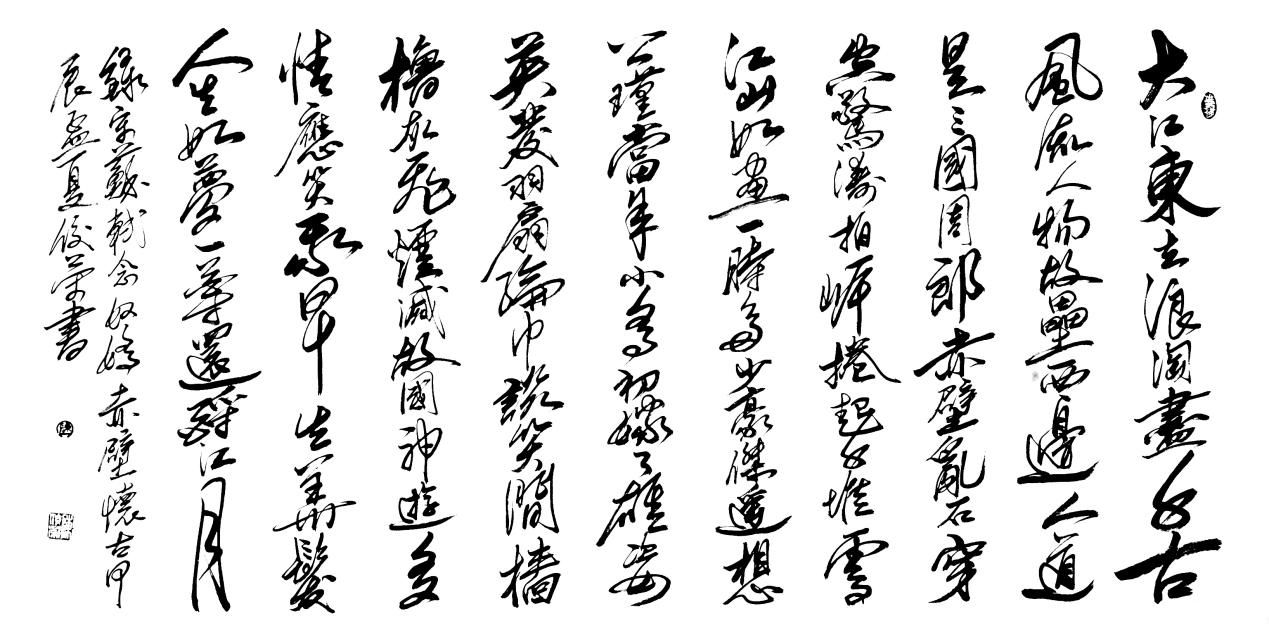 大江東去浪淘盡千古
風流人物故壘西邊人道
是三國周郎赤壁亂石穿
空驚濤拍岸捲起千堆雪
江山如畫一時多少豪傑遥想
公瑾當年小喬初嫁了雄姿
英發羽扇綸巾談笑間檣
櫓灰飛煙滅故國神遊多
情應笑我早生華髮
人生如夢一尊還酹江月
錄宋蘇軾念奴嬌赤壁懷古甲
辰孟夏俊書